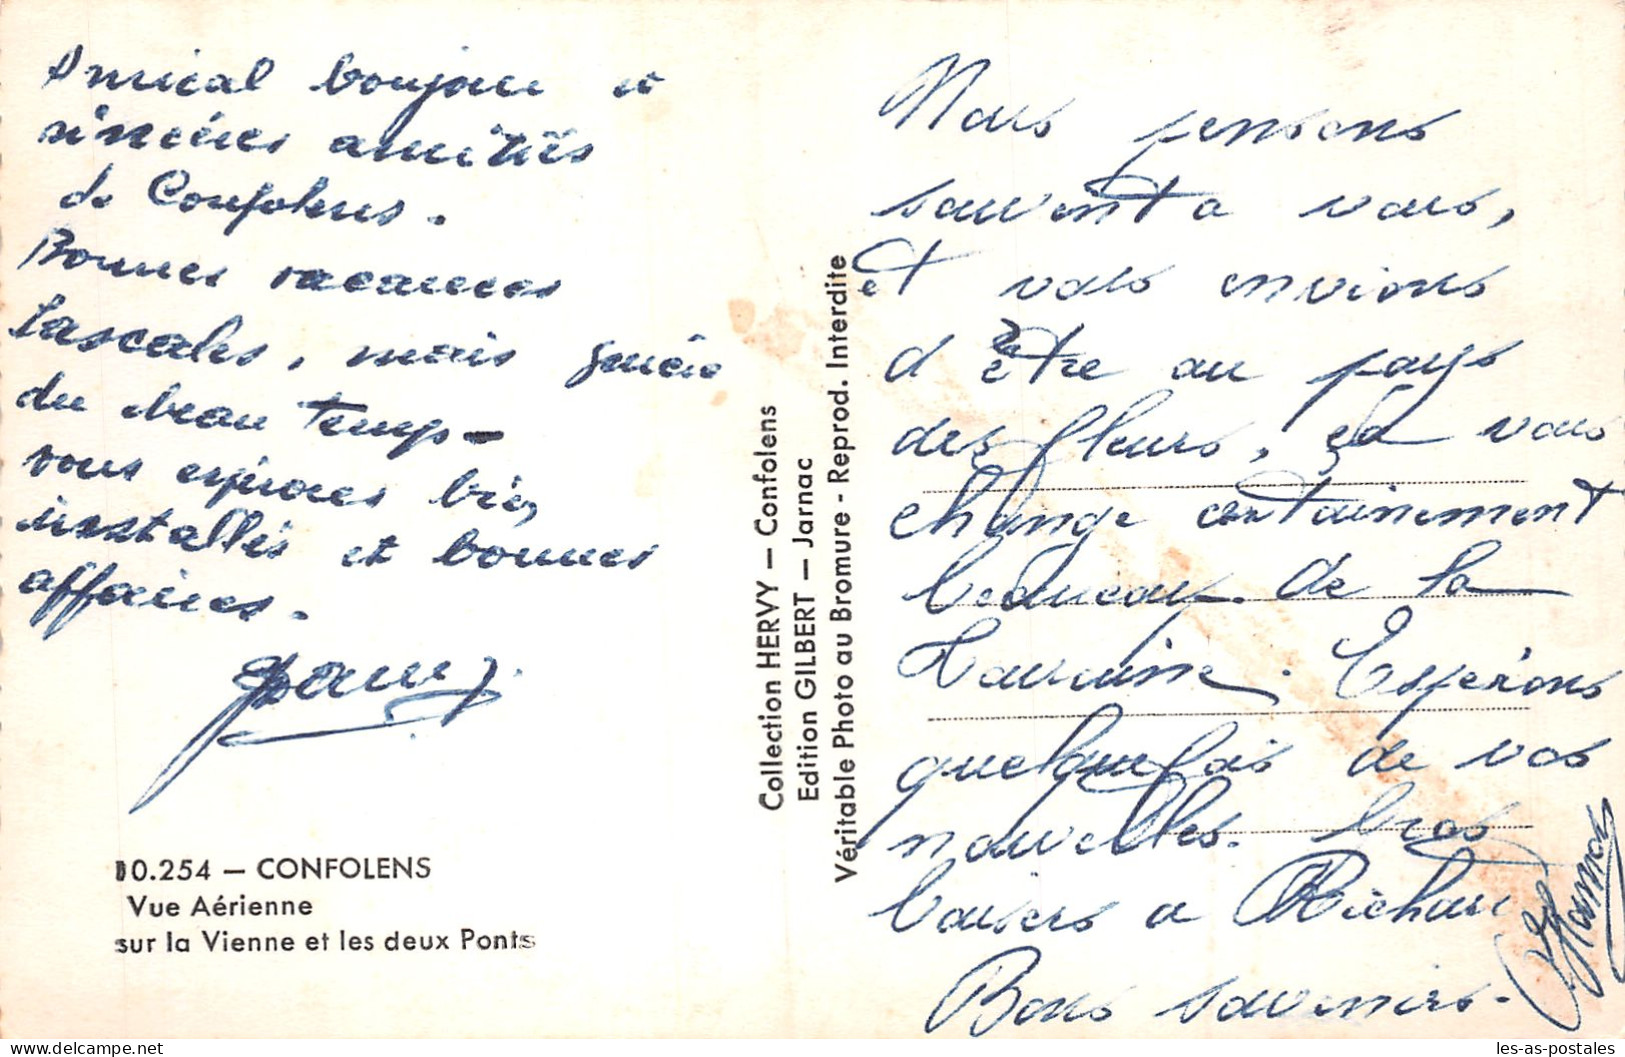 Amical bonjour et
sincères amitiés
de Confolens.
Bonnes vacances
Pascales, mais guère
du beau temps -
vous espérons bien
installés et bonnes
affaires.
10.254 — CONFOLENS
Vue Aérienne
sur la Vienne et les deux Ponts
Collection HERVY — Confolens
Edition GILBERT — Jarnac
Véritable Photo au Bromure - Reprod. Interdite
Nous pensons
souvent a vous,
et vous envions
d'être au pays
des fleurs, ça vous
change certainement
beaucoup de la
Touraine. Espérons
quelquefois de vos
nouvelles. Gros
baisers a Richard
Bons souvenirs.
les-as-postales.com